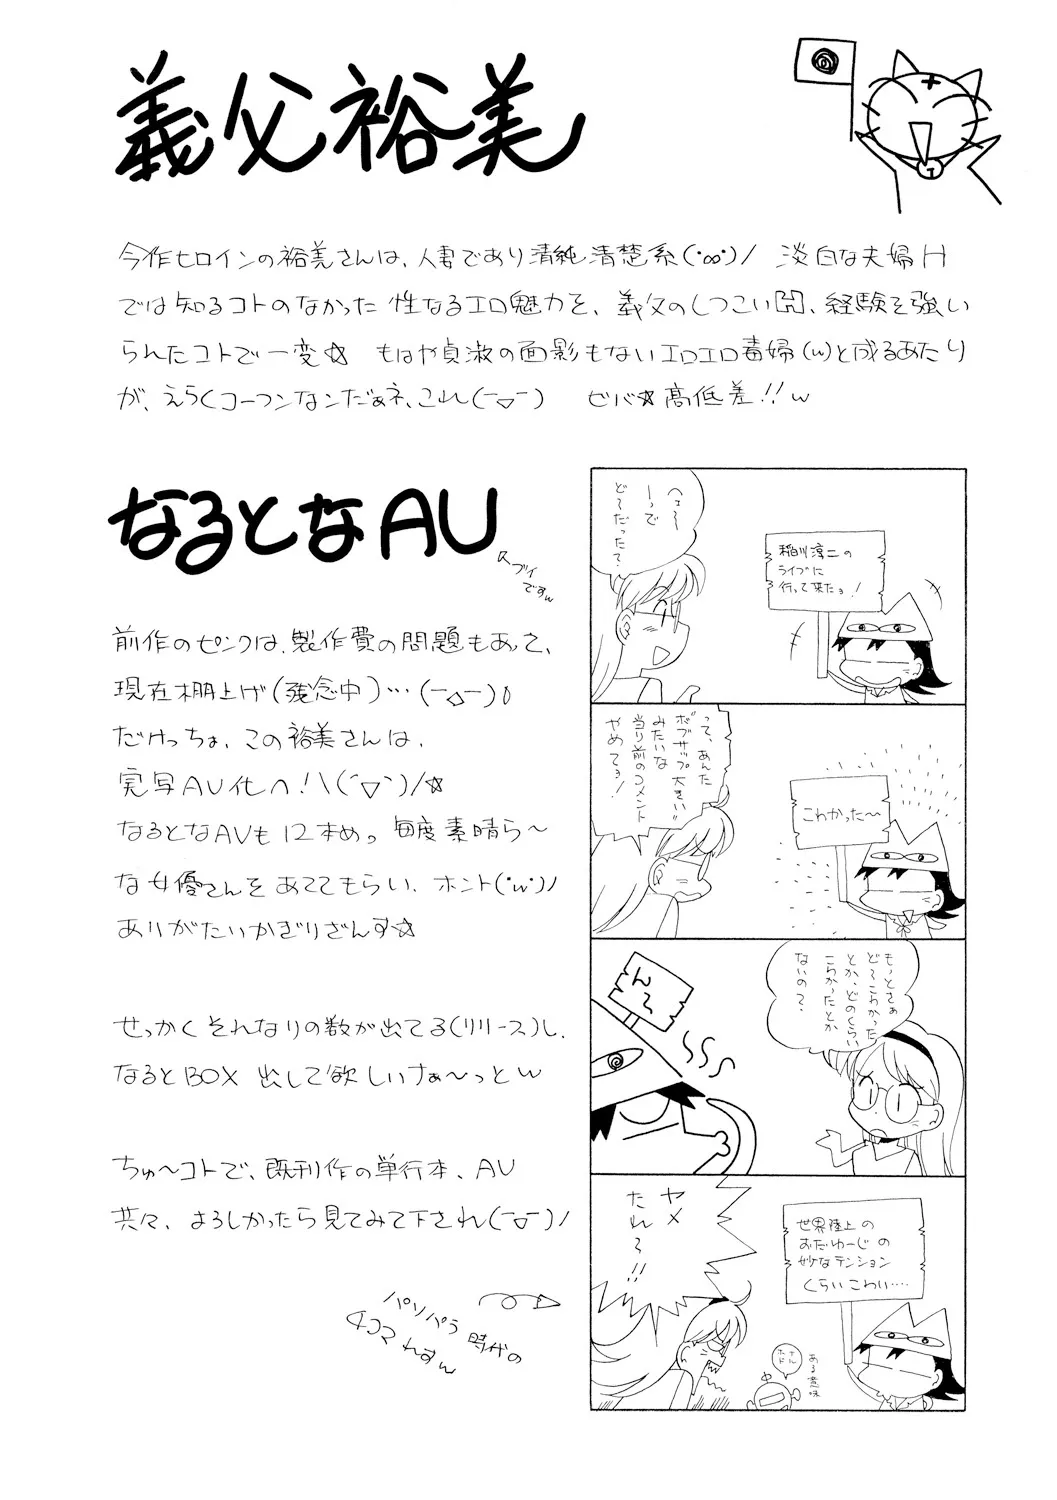 義父裕美
今作ヒロインの裕美さんは、人妻であり清純清楚系(・∞・)/ 淡白な夫婦H
では知るコトのなかった 性なるエロ魅力を、義父のしつこいH、経験を強い
られたコトで一変☆ もはや貞淑の面影もないエロエロ毒婦(w)と成るあたり
が、えらくコーフンなンだぁネ、これ(ー▽ー) ビバ☆高低差!!w
なるとなAU
スブイ
ですw
前作のピンクは、製作費の問題もあって、
現在棚上げ(残念中)…(ー△ー)0
だけっちょ、この裕美さんは、
実写AU化へ!\(´▽`)/☆
なるとなAVも12本めっ 毎度素晴ら〜
な女優さんをあててもらい、ホント('w')ノ
ありがたいかぎりざんす☆
せっかくそれなりの数が出てる(リリース)し、
なるとBOX 出して欲しいけぁ〜っとw
ちゅ〜コトで、既刊作の単行本、AU
共々、よろしかったら見てみて下され(ー▽ー)ノ
パソパラ時代の
4コマれすw
稲川淳二の
ライブに
行って来たョ!
へェ〜
ーっで
ど〜だった?
こわかった〜
って、あんた
ボブサップ大きい"
みたいな
当り前のコメント
やめてョ!
もっとさぁ
ど〜こわかった
とか、どのくらい
こわかったとか
ないの?
ん〜
世界陸上の
おだゆーじの
妙なテンション
くらいこわい‥‥
ヤメ
たれ〜!!
ナル
ホド
ある意味